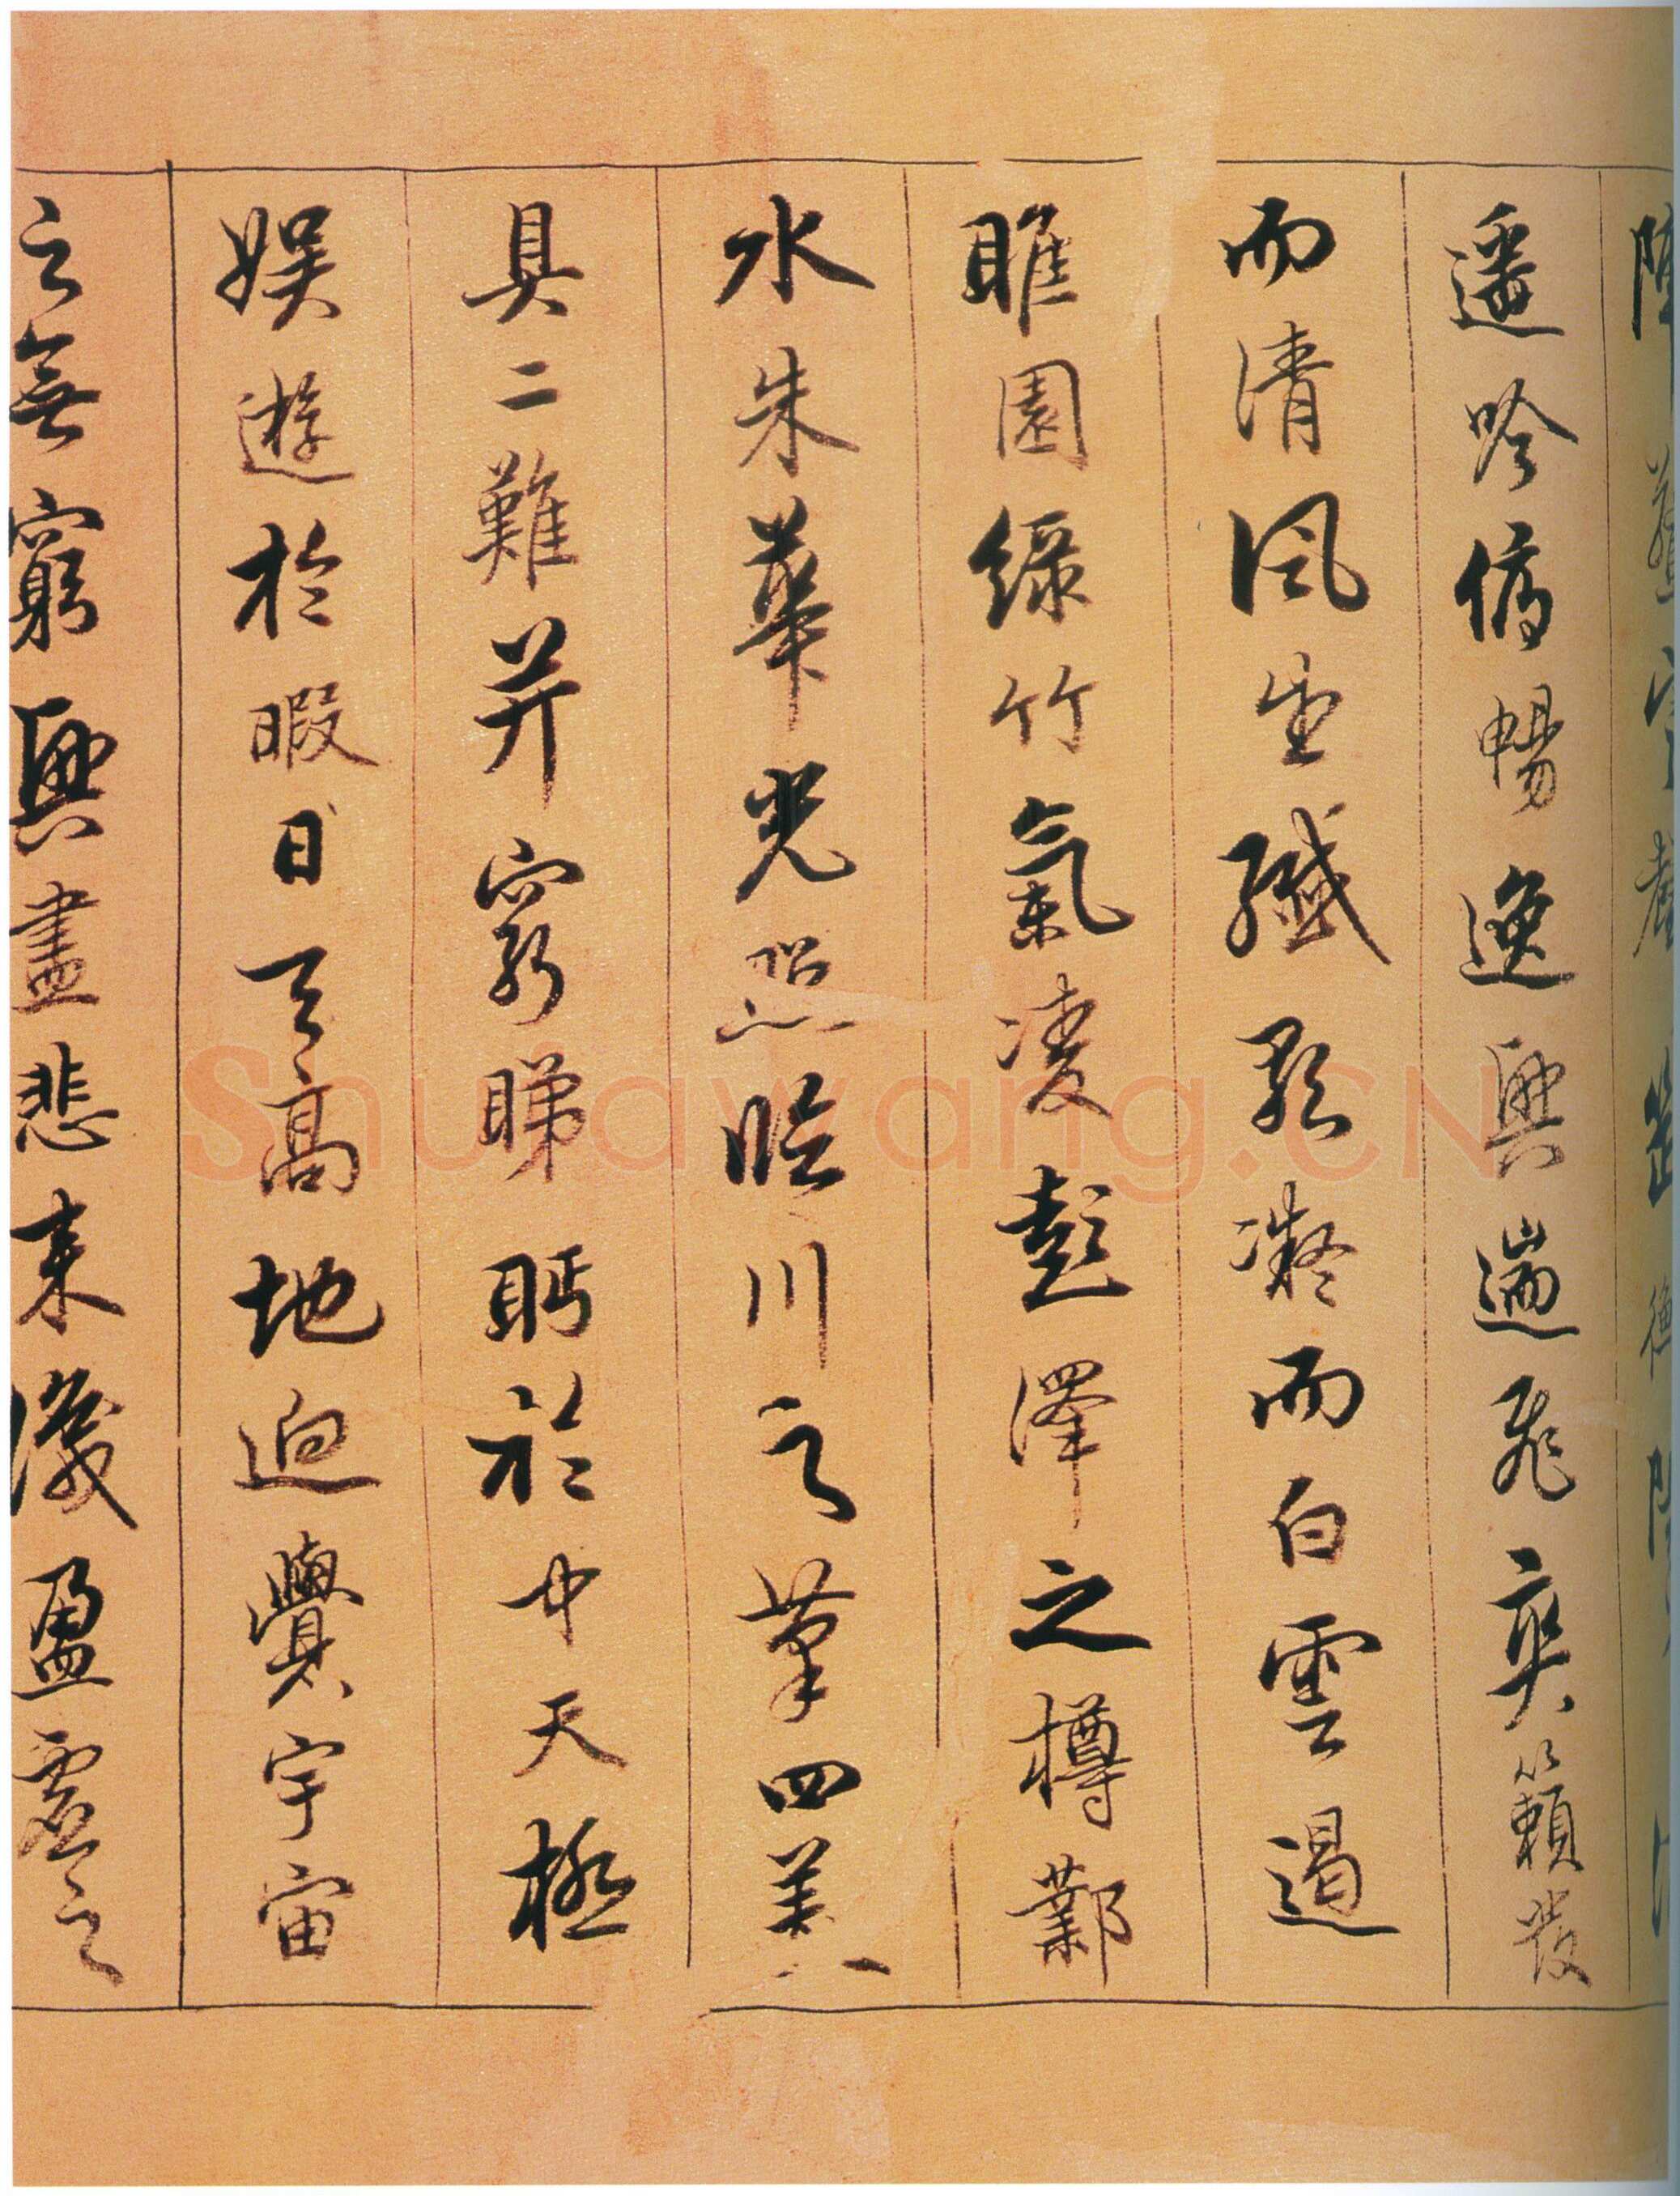 陣驚寒聲斷衡陽
遙吟俯暢逸興遄飛爽籟發
而清風生纖歌凝而白雲遏
睢園綠竹氣凌彭澤之樽鄴
水朱華光照臨川之筆四美
具二難并窮睇眄於中天極
娛遊於暇日天高地迥覺宇宙
之無窮興盡悲來識盈虛之
Shufawang.CN